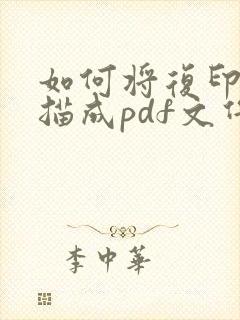 如何将復印
描成pdf文
李中華